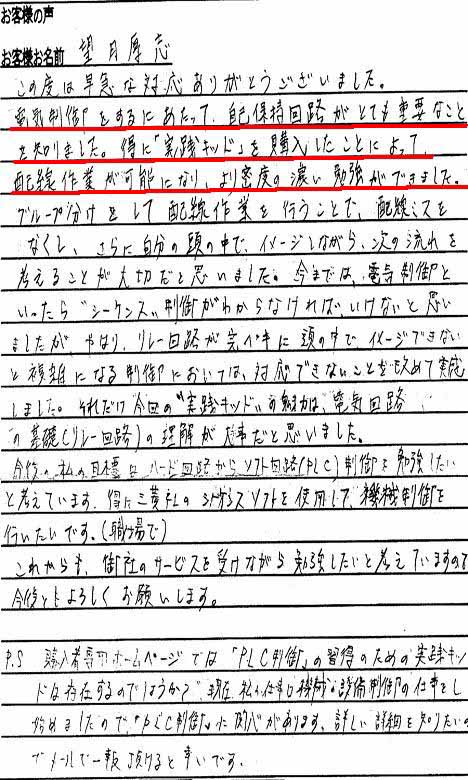 お客様の声
お客様お名前 望月厚志
この度は早急な対応ありがとうございました。
電気制御をするにあたって、自己保持回路がとても重要なこと
を知りました。特に「実践キッド」を購入したことによって、
配線作業が可能になり、より密度の濃い勉強ができました。
グループ分けをして配線作業を行うことで、配線ミスを
なくし、さらに自分の頭の中で、イメージしながら、次の流れを
考えることが大切だと思いました。今までは、電気制御と
いったら"シーケンス"制御がわからなければ、いけないと思い
ましたが、やはり、リレー回路が完ペキに頭の中で、イメージできない
と複雑になる制御においては、対応できないことを改めて実感
しました。それだけ今回の"実践キッド"の魅力は、電気回路
の基礎(リレー回路)の理解が大事だと思いました。
今後の私の目標はハード回路からソフト回路(PLC)制御を勉強したい
と考えています。特に三菱社のシーケンスソフトを使用して、機械制御を
行いたいです。(職場で)
これからも、御社のサービスを受けながら勉強したいと考えていますので
今後ともよろしくお願いします。
P.S 購入者専用ホームページでは「PLC制御」の習得のための実践キッ
ドは存在するのでしょうか? 現在、私の仕事は機械の設備制御の仕事をし
始めましたので、「PLC制御」に関心があります。詳しい詳細を知りたいの
でメールで一報頂けると幸いです。